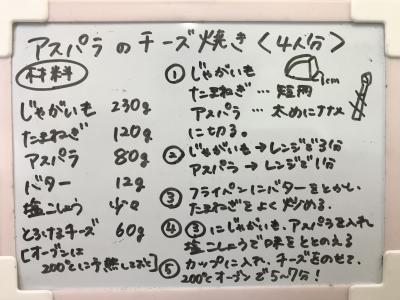 アスパラのチーズ焼き〈4人分〉
材料
じゃがいも 230g
たまねぎ 120g
アスパラ 80g
バター 12g
塩こしょう 少々
とろけるチーズ 60g
[オーブンは
200℃に予熱しておく]
① じゃがいも
たまねぎ…短冊
1cm
アスパラ…太めにナナメ
に切る。
② じゃがいも→レンジで3分
アスパラ→レンジで1分
③ フライパンにバターをとかし、
たまねぎをよく炒める。
④ ③にじゃがいも、アスパラを入れ
塩こしょうで味をととのえる
⑤ カップに入れ、チーズをのせて、
200℃オーブンで5~7分!